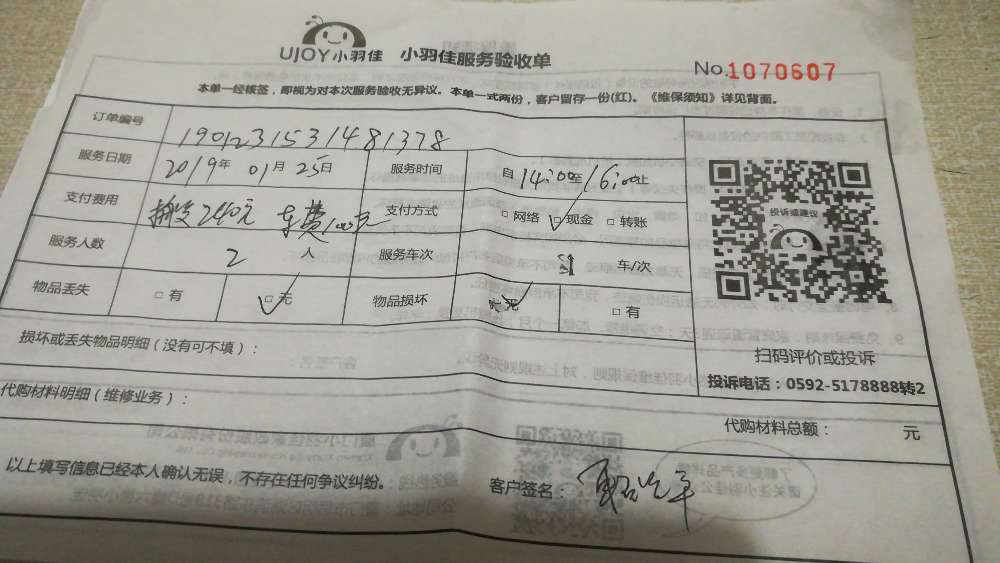 UJOY小羽佳 小羽佳服务验收单
No.1070607
本单一经核签，即视为对本次服务验收无异议。本单一式两份，客户留存一份(红)。《维保须知》详见背面。
订单编号 190123153148 1378
服务日期 2019年 01月 25日 服务时间 自14:00至16:00止
支付费用 搬运240元 车费100元 支付方式 □网络 □现金 □转账
服务人数 2 人 服务车次 车/次
物品丢失 □有 □无 物品损坏 □无 □有
投诉或建议
扫码评价或投诉
投诉电话：0592-5178888转2
损坏或丢失物品明细（没有可不填）：
代购材料明细（维修业务）：
代购材料总额： 元
以上填写信息已经本人确认无误，不存在任何争议纠纷。
客户签名：